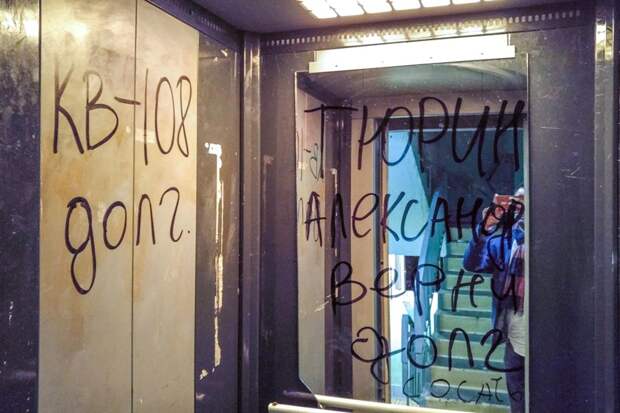 КВ-108
долг.
ТЮРИН
АЛЕКСАНДР
ВЕРНИ
долг
СОСАТЬ